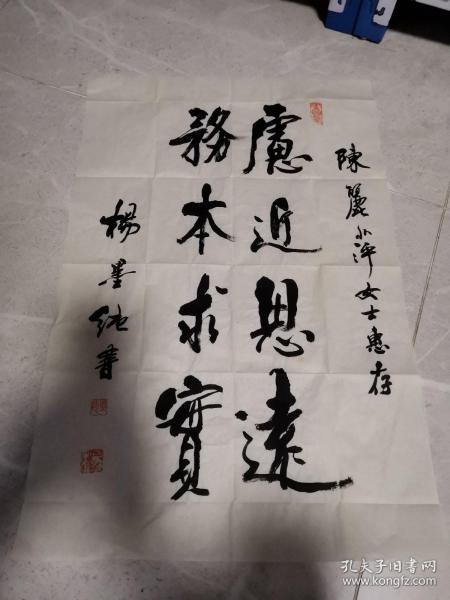 陳麗萍女士惠存
慮近思遠
務本求實
楊墨純書
孔夫子旧书网
www.kongfz.com